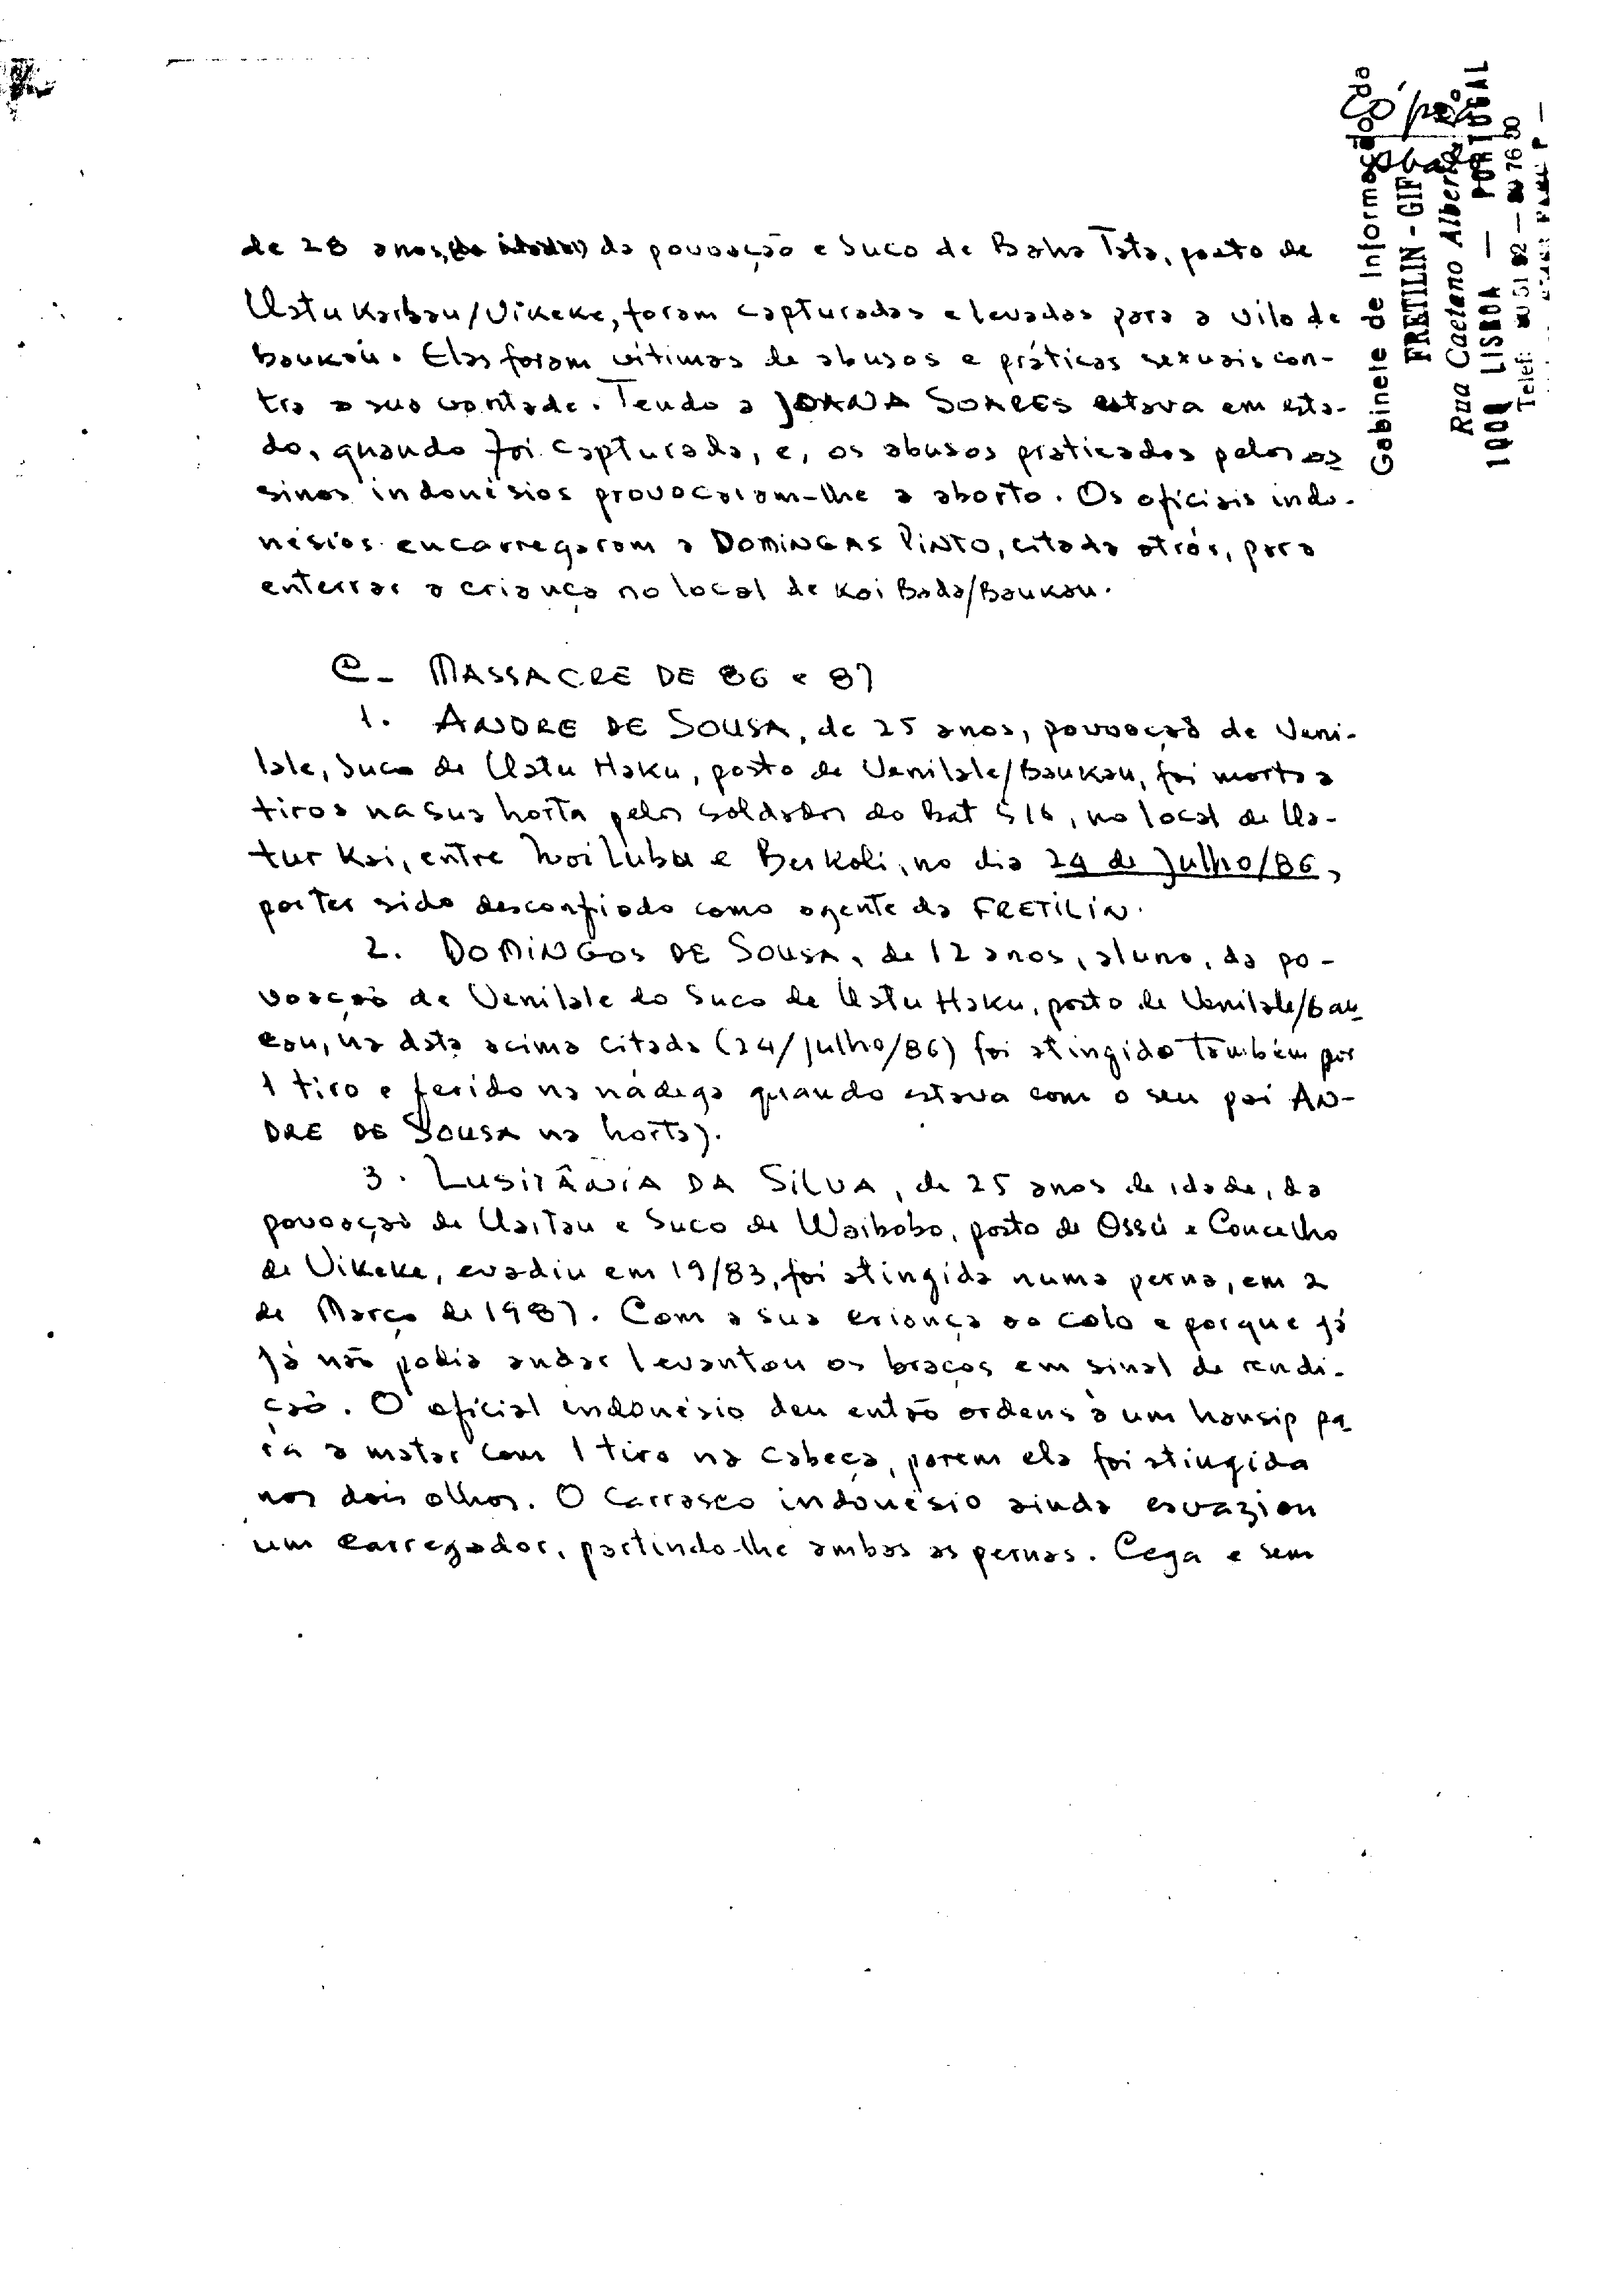 Cópia
Gabinete de Informação da
FRETILIN - GIF
Rua Caetano Alberto
1000 LISBOA — PORTUGAL
Telef:
de 28 anos, da povoação e Suco de Baha Tata, posto de
Uatu Karbau/Vikeke, foram capturadas e levadas para a vila de
Baukau. Elas foram vítimas de abusos e práticas sexuais con-
tra a sua vontade. Tendo a JOANA SOARES estava em esta-
do, quando foi capturada, e, os abusos praticados pelos as
sinos indonésios provocaram-lhe a aborto. Os oficiais indo-
nésios encarregaram a DOMINGAS PINTO, citada atrás, para
enterrar a criança no local de Koi Bada/Baukau.
C- MASSACRE DE 86 e 87
1. ANDRE DE SOUSA, de 25 anos, povoação de Veni-
lale, Suco de Uatu Haku, posto de Venilale/Baukau, foi morto a
tiros na sua horta pelos soldados do Bat 516, no local de Ua-
tur Kai, entre Woi Luba e Berkoli, no dia 24 de Julho/86,
por ter sido desconfiado como agente da FRETILIN.
2. DOMINGOS DE SOUSA, de 12 anos, aluno, da po-
voação de Venilale do Suco de Uatu Haku, posto de Venilale/Bau
cau, na data acima citada (24/Julho/86) foi atingido também por
1 tiro e ferido na nádega quando estava com o seu pai AN-
DRE DE SOUSA na horta).
3. LUSITÂNIA DA SILVA, de 25 anos de idade, da
povoação de Uaitau e Suco de Waibobo, posto de Ossú e Concelho
de Vikeke, evadiu em 19/83, foi atingida numa perna, em 2
de Março de 1987. Com a sua criança ao colo e porque já
já não podia andar levantou os braços em sinal de rendi-
ção. O oficial indonésio deu então ordens à um hansip pa
ra a matar com 1 tiro na cabeça, porem ela foi atingida
nos dois olhos. O carrasco indonésio ainda esvaziou
um carregador, partindo-lhe ambas as pernas. Cega e sem